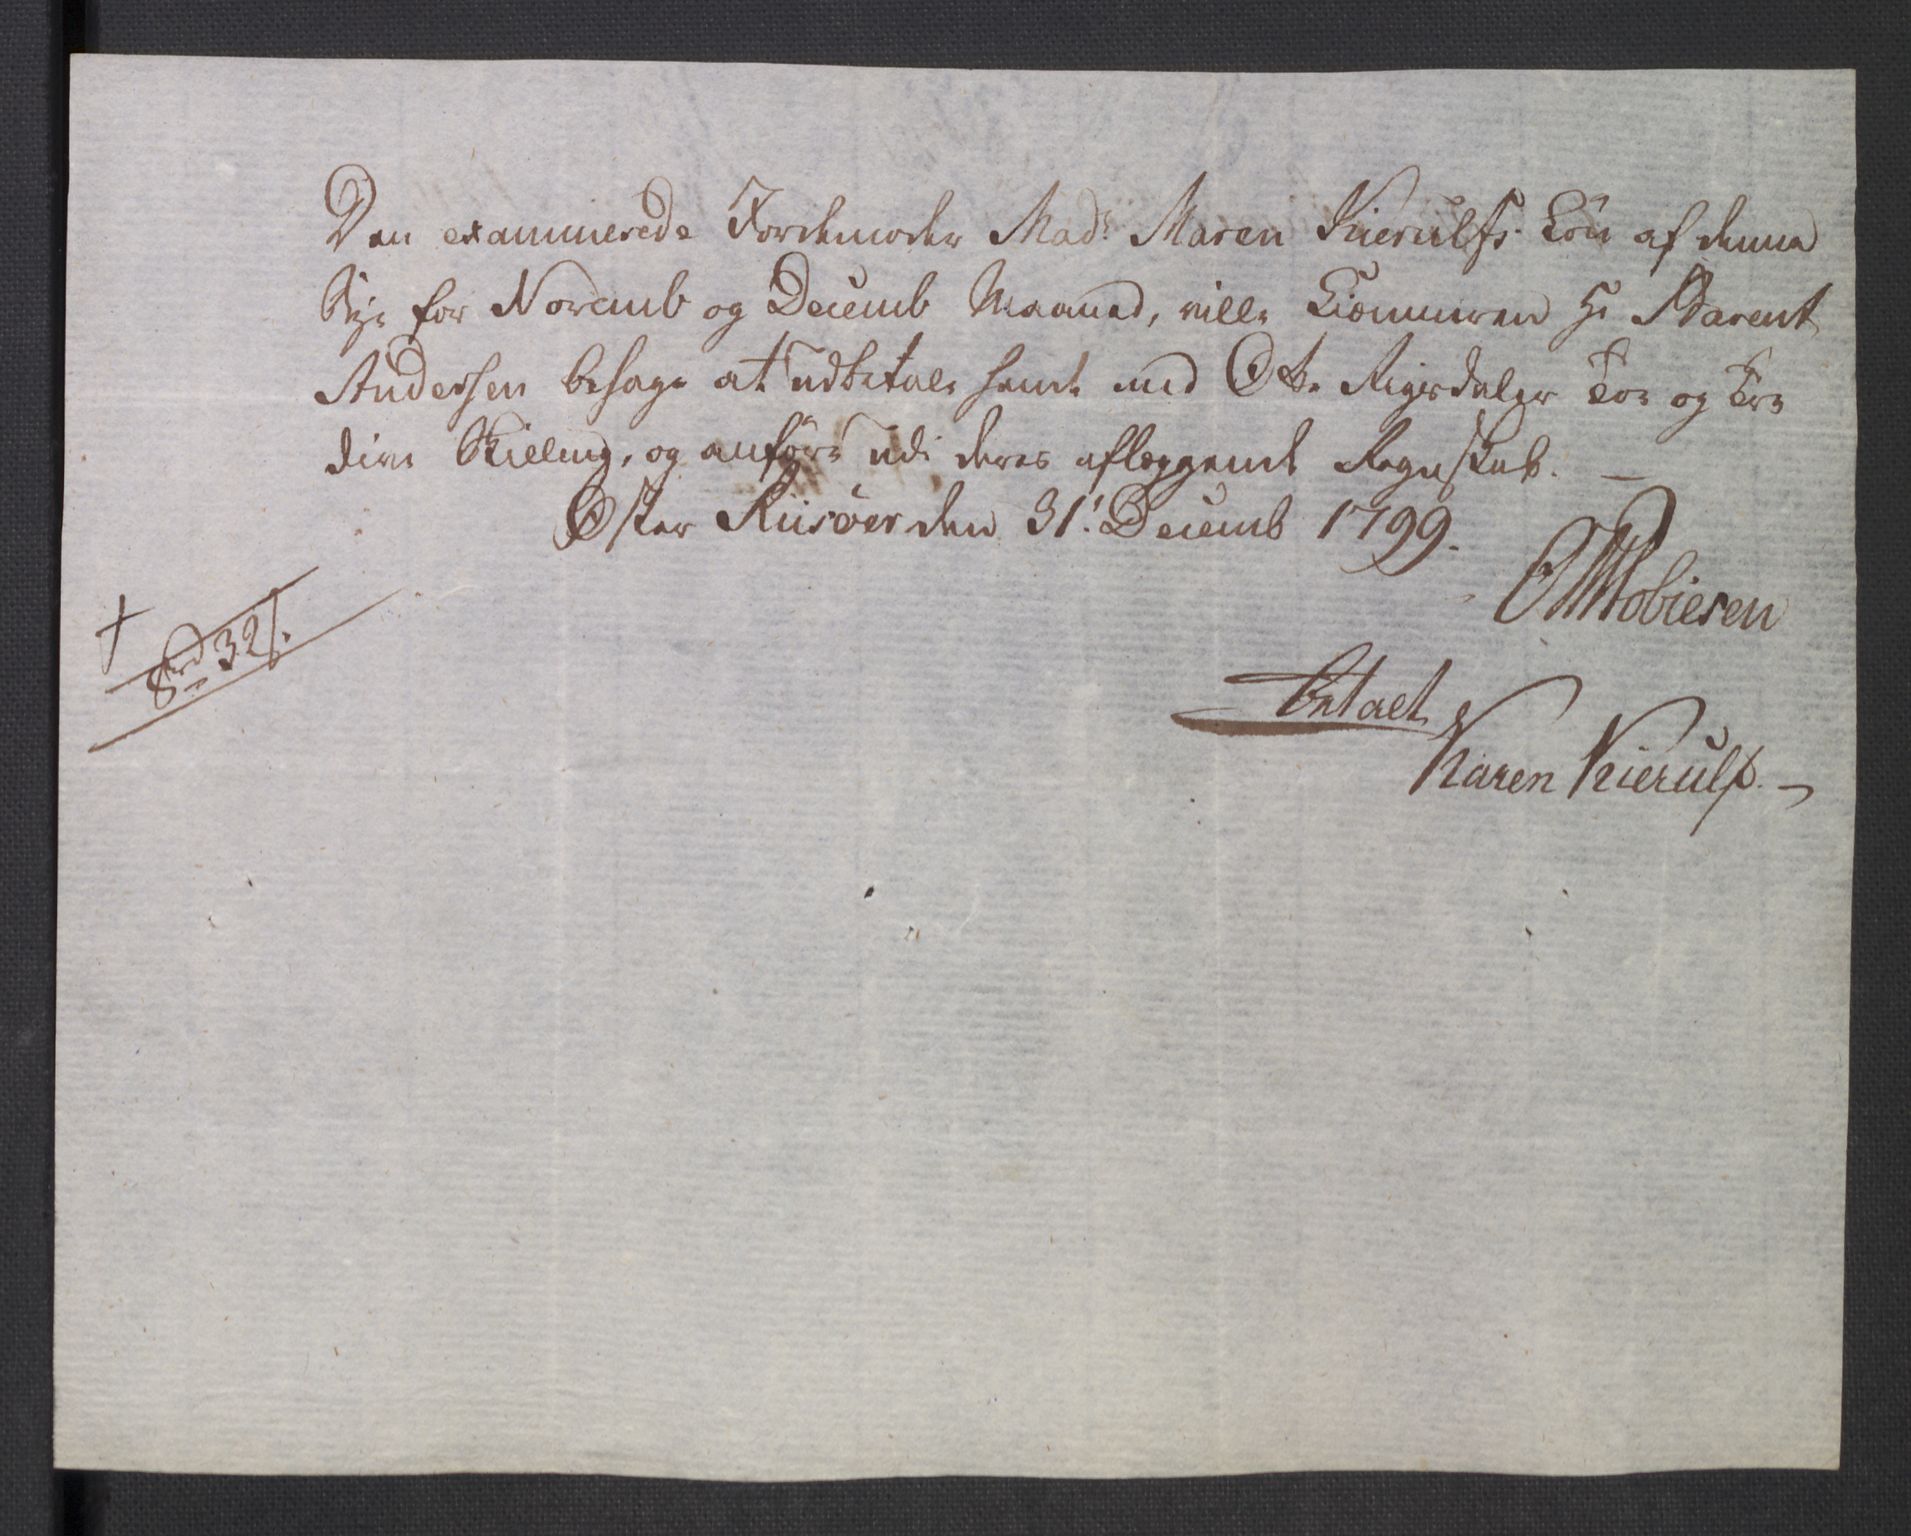 Den examinerede Jordemoder Mad: Maren Kierulfs Løn af denne
Bye for Novemb og Decemb Maaned, ville Kiæmneren Hr Barent
Andersen behage at udbetale hende med Otte Rigsdaler Toe og Tre
dive Skilling, og anføre udi deres aflæggende Regnskab. —
Øster Riisøer den 31: Decemb 1799.
Tobiesen
8 rd 32 s.
betalt
Karen Kierulf. —